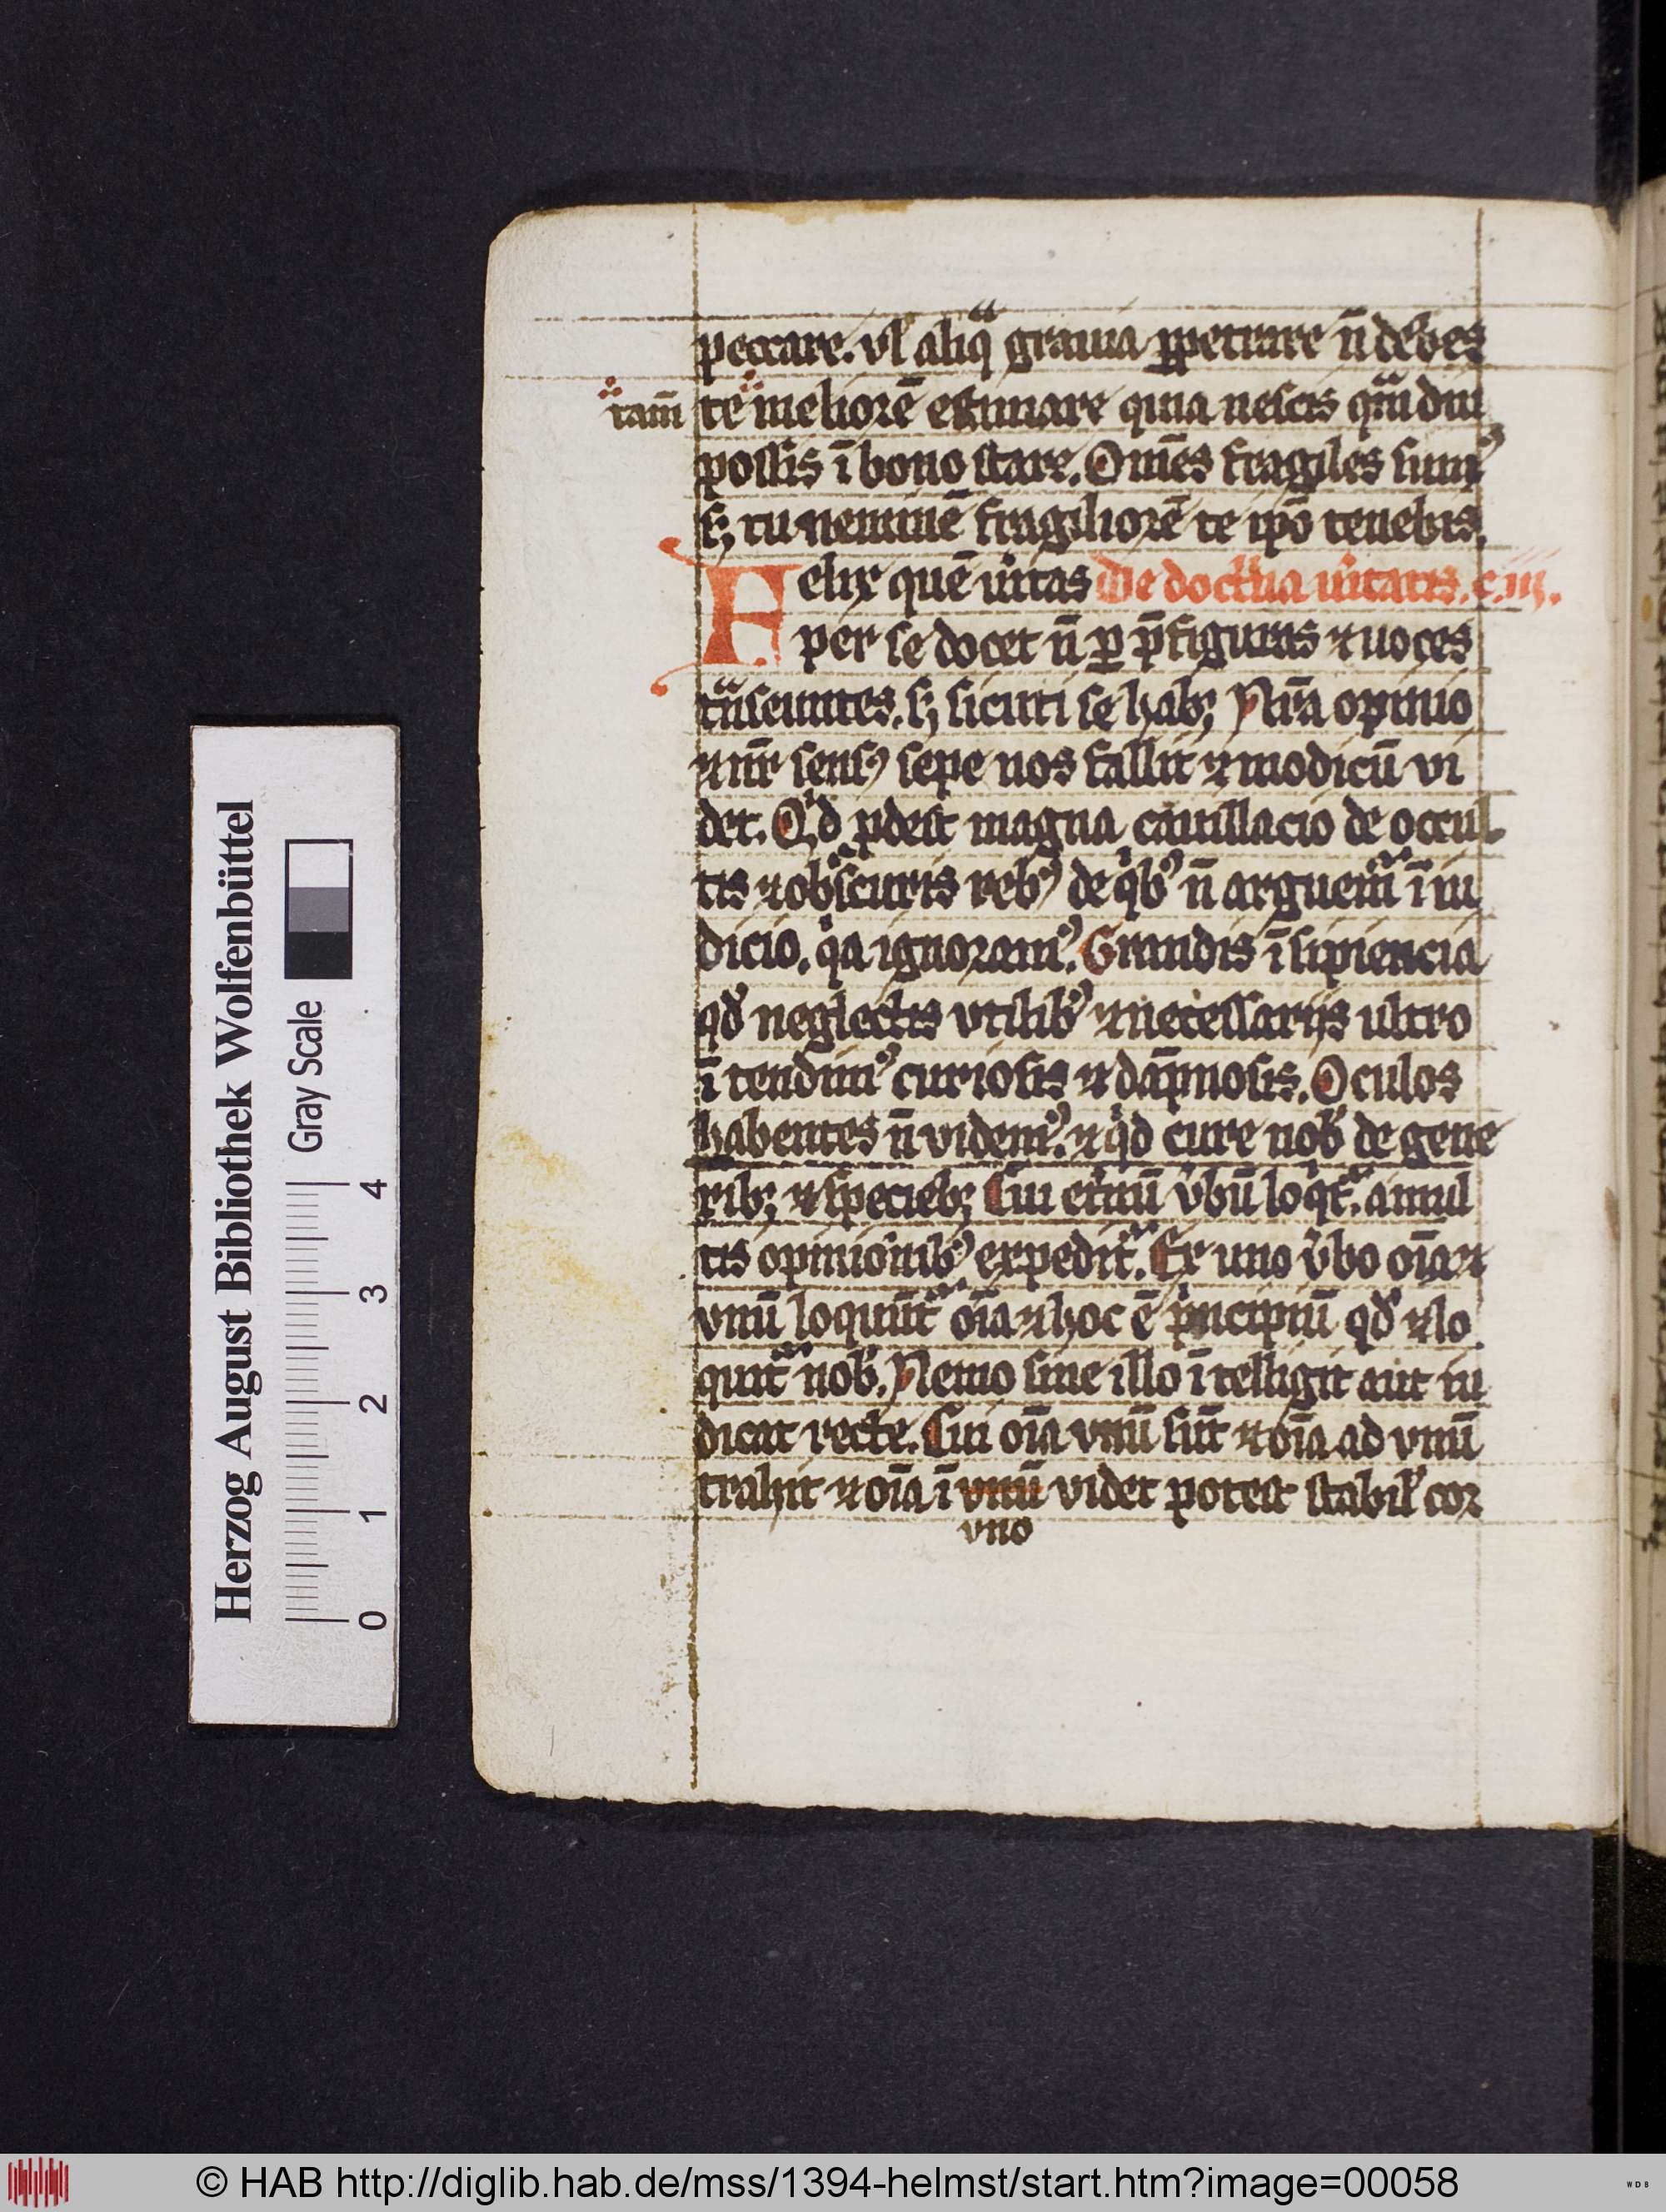 peccare. vl' aliqͣ grauia ꝑpetrare n̄ debes
tam̄ te meliorē estimare quia nescis qͣmdiu
possis ī bono stare. Om̄es fragiles sumꝰ
sꝫ tu neminē fragiliorē te ip̄o tenebis.
Felix quē u͛itas De doct͛ina u͛itatis. c. iij.
per se docet n̄ ꝑ p̄ figuras ⁊ uoces
tͣnseuntes. sꝫ sicuti se habꝫ Nr̄a opinio
⁊ nr̄ sensꝰ sepe nos fallit ⁊ modicū vi
det. Qͥd ꝓdest magna cauillacio de occul
tis ⁊ obscuris rebꝰ de qͥbꝰ n̄ arguemͬ ī iu
dicio. qͥa ignoramꝰ. Grandis ī sipiencia
qd' neglectis vtilibꝰ ⁊ necessarijs ultro
ī tendimꝰ curiosis ⁊ dāpnosis. Oculos
habentes n̄ videmꝰ. ⁊ qͥd cure nob' de gene
ribꝫ ⁊ speciebꝫ Cui et͛nū v͛bū loqͥtͬ. a mul
tis opinionibꝰ expeditͬ. Ex uno v͛bo oīa ⁊
vnū loquūtͬ oīa ⁊ hoc ē pͥncipiū qd' ⁊ lo
quitͬ nob'. Nemo sine illo ī telligit aut iu
dicat recte. Cui oīa vnū sūt ⁊ oīa ad vnū
trahit ⁊ oīa ī vnū videt potest stabil' cor
vno
tam̄
Herzog August Bibliothek Wolfenbüttel
Gray Scale
0 1 2 3 4
© HAB http://diglib.hab.de/mss/1394-helmst/start.htm?image=00058
WDB